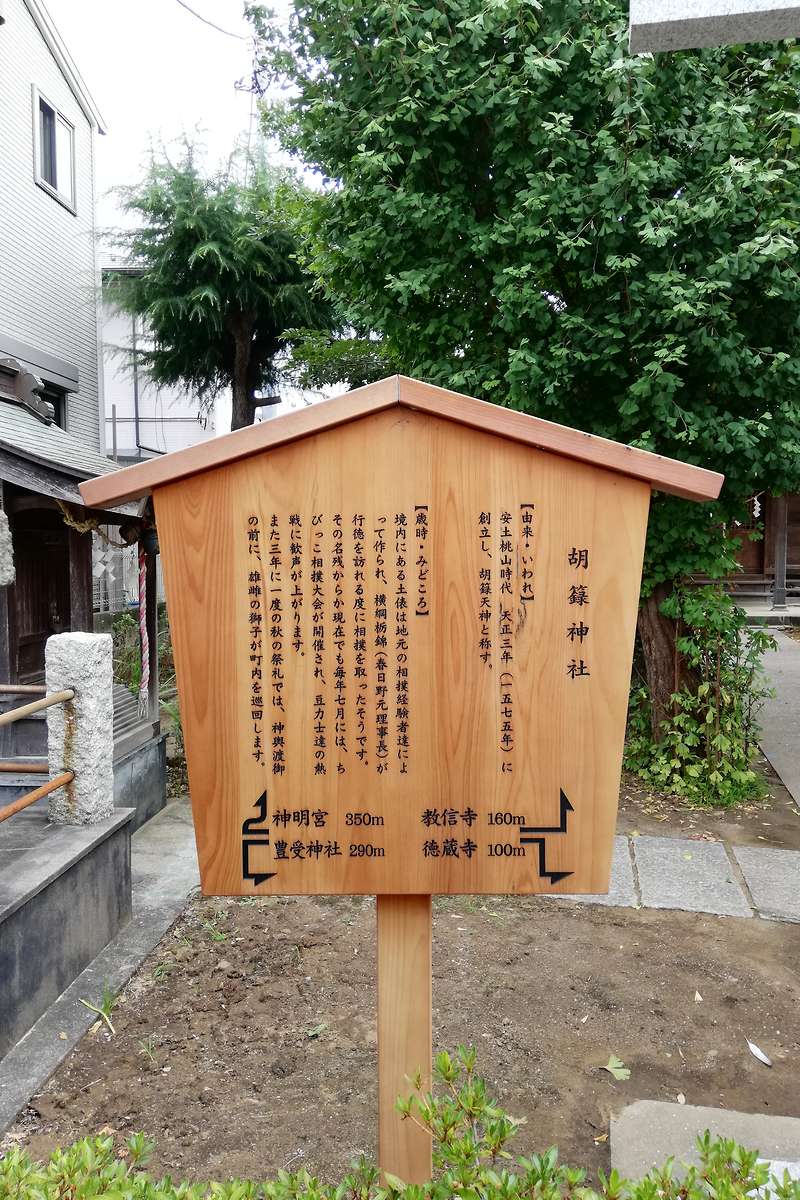 胡籙神社
【由来・いわれ】
安土桃山時代 天正三年(一五七五年)に
創立し、胡籙天神と称す。
【歳時・みどころ】
境内にある土俵は地元の相撲経験者達によ
って作られ、横綱栃錦(春日野元理事長)が
行徳を訪れる度に相撲を取ったそうです。
その名残からか現在でも毎年七月には、ち
びっこ相撲大会が開催され、豆力士達の熱
戦に歓声が上がります。
また三年に一度の秋の祭礼では、神輿渡御
の前に、雄雌の獅子が町内を巡回します。
神明宮 350m
豊受神社 290m
教信寺 160m
徳蔵寺 100m